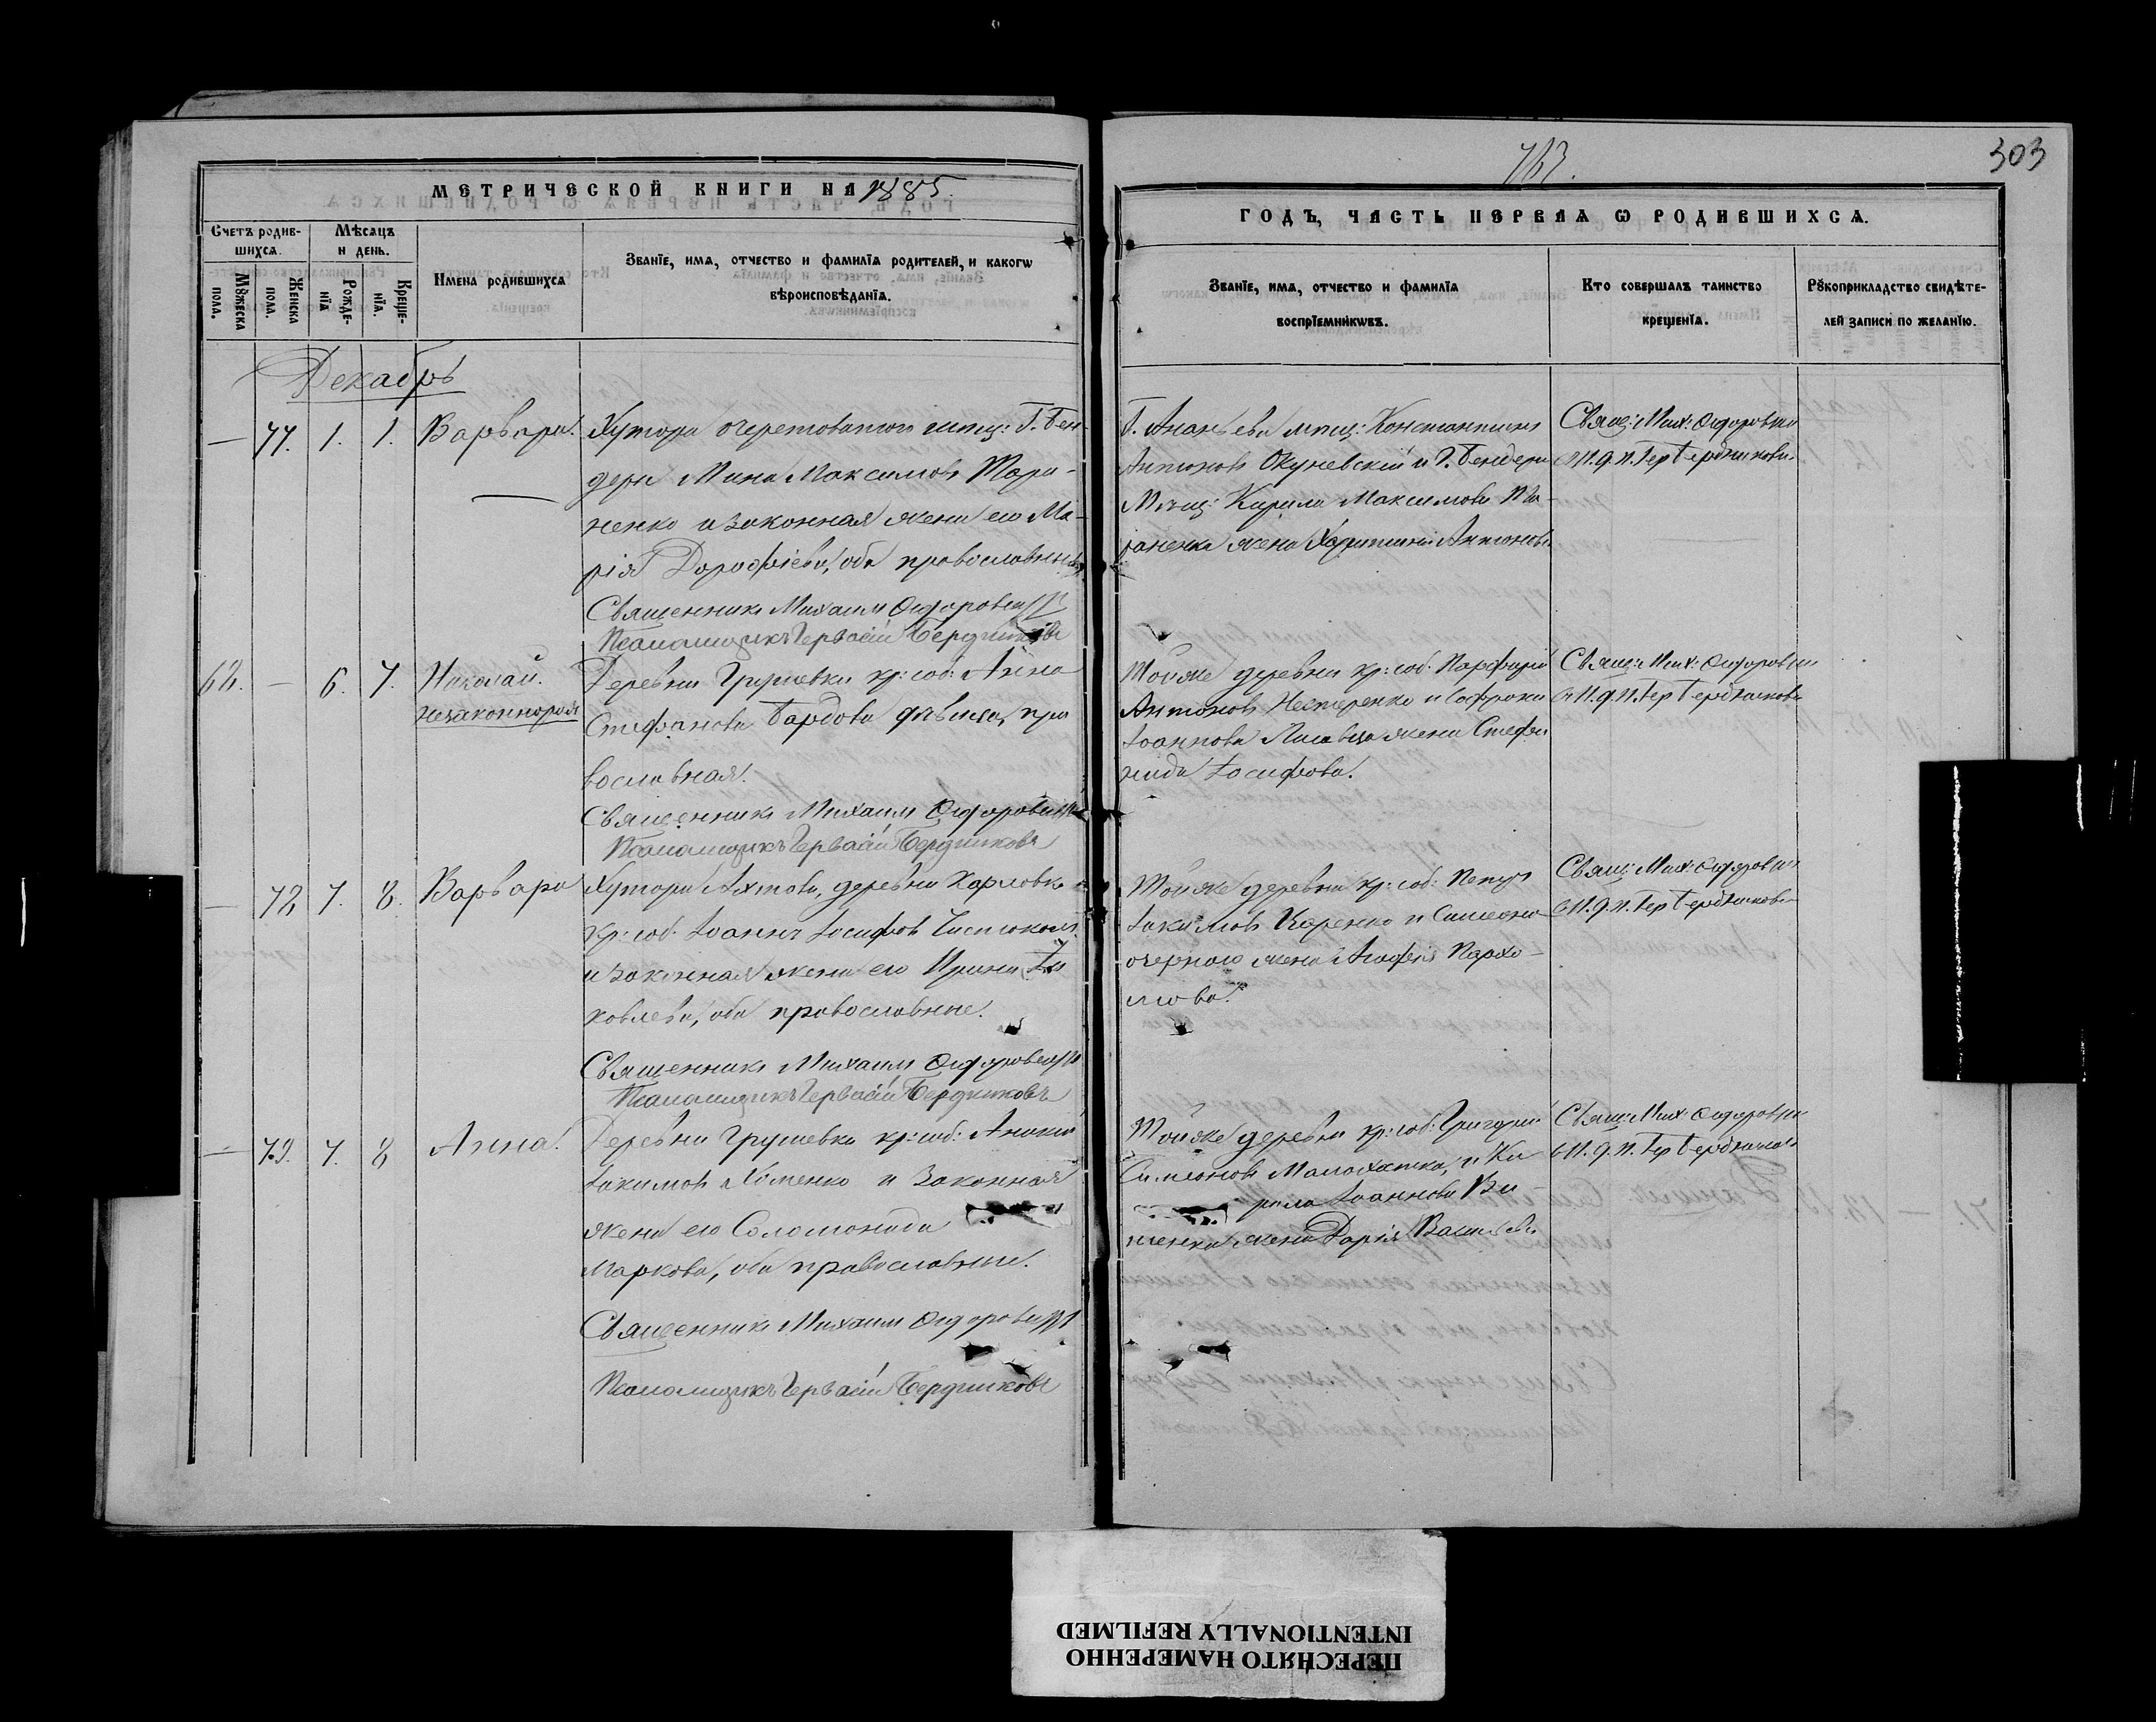 763.
303
МЕТРИЧЕСКОЙ КНИГИ НА 1885.
ГОДЪ, ЧАСТЬ ПЕРВАЯ Ѡ РОДИВШИХСѦ.
Счетъ родив-
шихсѧ.
Мѣсѧцъ
и день.
Мꙋжеска
пола.
Женска
пола.
Рожде-
нїѧ
Креще-
нїѧ.
Имена родившихсѧ
Званїе, имѧ, отчество и фамилїѧ родителей, и какогѡ
вѣроисповѣданїѧ.
Званїе, имѧ, отчество и фамилїѧ
воспрїемникѡвъ.
Кто совершалъ таинство
крещенїѧ.
Рꙋкоприкладство свидѣте-
лей записи по желанїю.
Декабрь
— 77. 1. 1. Варвара.
Хутора Очеретоватого мѣщ: Г. Бен-
деръ Мина Максимовъ Тара-
ненко и законная жена его Ма-
рія Дорофіева, оба православные
Священникъ Михаилъ Ѳидоровичъ
Псаломщикъ Гервасій Бердниковъ
Г. Ананьева мѣщ: Константинъ
Антоновъ Окуневскій и Г. Бендеръ
Мѣщ: Кирила Максимова Та-
раненка жена Харитина Антонова
Свящ: Мих: Ѳидоровичъ
Гер Бердниковъ
62. — 6. 7. Николай.
незаконнорож
Деревни Грушевки кр: соб: Анна
Стефанова Бардова дѣвица, пра
вославная.
Священникъ Михаилъ Ѳидоровичъ
Псаломщикъ Гервасій Бердниковъ
Тойже деревни кр: соб: Парфирій
Антоновъ Нестеренко и Софрона
Іоаннова жена Стефа
нида Іосифова.
Свящ: Мих: Ѳидоровичъ
Гер Бердниковъ
— 78 7. 8. Варвара
Хутора Ахтова, деревни Карловки
кр: соб: Іоаннъ Іосифовъ
и законная жена его Ирина Іа
ковлева, оба православные.
Священникъ Михаилъ Ѳидоровичъ
Псаломщикъ Гервасій Бердниковъ
Тойже деревни кр: соб: Петръ
Іакимовъ и Симеона
жена Агафія Пархо-
мова.
Свящ: Мих: Ѳидоровичъ
Гер Бердниковъ
— 79. 7. 8 Анна.
Деревни Грушевки кр: соб: Аникій
Іакимовъ Хоменко и законная
жена его Соломонида
Маркова, оба православные.
Священникъ Михаилъ Ѳидоровичъ
Псаломщикъ Гервасій Бердниковъ
Тойже деревни кр: соб: Григорій
Симеоновъ Малохатка, и Ки
рила Іоаннова
жена Дарія Васильева
Свящ: Мих: Ѳидоровичъ
Гер Бердниковъ
ПЕРЕСНЯТО НАМЕРЕННО
INTENTIONALLY REFILMED